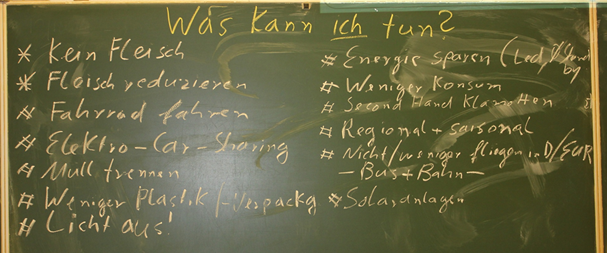 Was kann ich tun?
* Kein Fleisch
* Fleisch reduzieren
# Fahrrad fahren
# Elektro-Car-Sharing
# Müll trennen
# Weniger Plastik/-Verpackg
# Licht aus!
# Energie sparen (Led/
by
# Weniger Konsum
# Second Hand Klamotten
# Regional + saisonal
# Nicht/weniger fliegen in D/EUR
- Bus + Bahn -
# Solaranlagen